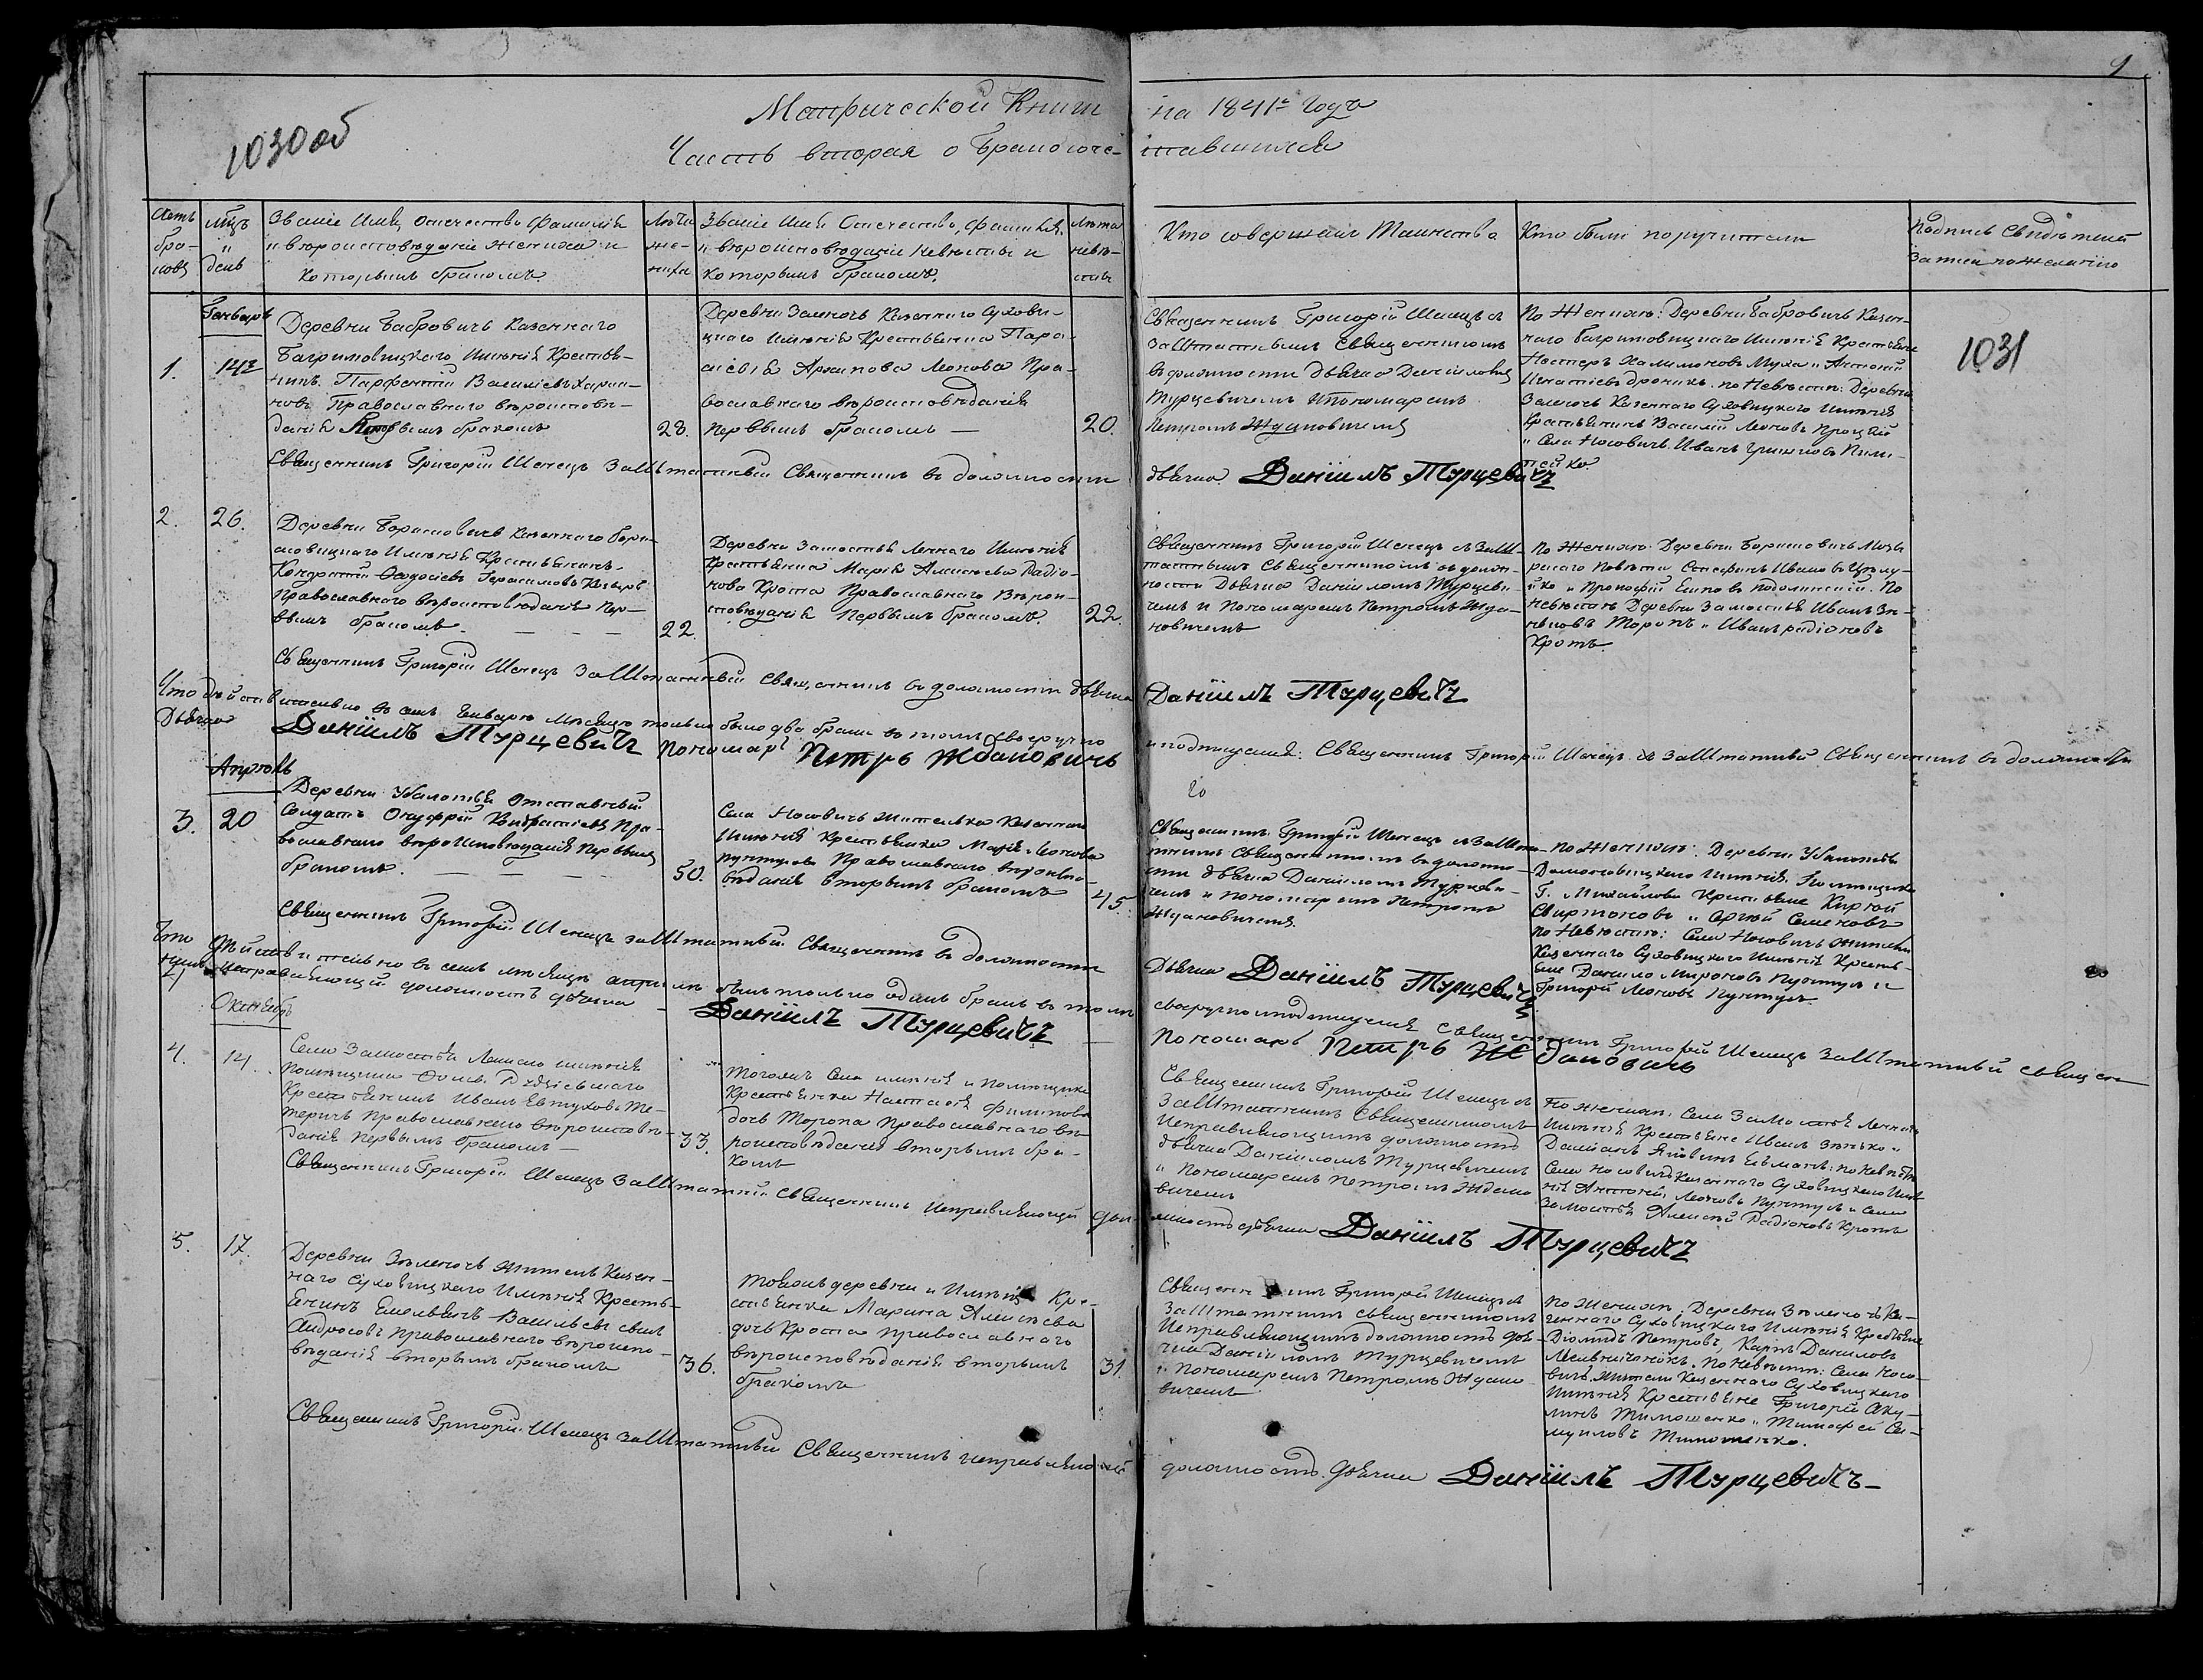 9
1030 об
Метрической Книги на 1841г Годъ
Часть вторая о бракосоче-тавшихся
Счетъ бра-ковъ
Мцъ и день
Званіе Имя, Отечество Фамилія
и вероисповеданіе жениха и
которымъ бракомъ.
Лета же-ниха
Званіе Имя Отечество, фамилія,
и вероисповеданіе невесты и
которымъ бракомъ.
Лета неве-сты
Кто совершалъ Таинство
Кто были поручители
Подпись Свидетелей
записи по желанію
1031
Генварь
1.
14г
Деревни Бабровичъ Казеннаго
Багримовицкаго Именія Крестья-
нинъ Парфентій Василіевъ
Православнаго вероиспове-
данія Первымъ бракомъ
28.
Деревни Заленочъ Казеннаго Сухови-
цкаго Именія Крестьянка Пара-
Архипова Леонова Пра-
вославнаго вероисповеданія
Первымъ бракомъ —
20.
Священникъ Григорій Шенецъ съ
Заштатнымъ Священникомъ
въ должности дьячка Даніиломъ
Турцевичемъ и Пономаремъ
Петромъ Ждановичемъ
По Жениху: Деревни Бабровичъ Казен-
наго Багримовицкаго Именія Крестьяне
Несторъ Халимоновъ Муха и Антоній
Игнатіевъ по Невесте: Деревни
Заленочъ Казеннаго Суховицкаго Именія
Крестьянинъ Василій Леоновъ Процко
и Села Носовичъ Иванъ
Священникъ Григорій Шенецъ Заштатный Священникъ въ должности
дьячка Даніилъ Турцевичъ
2.
26.
Деревни Борисовичъ Казеннаго Бори-
совицкаго Именія Крестьянинъ
Кондратій Феодосіевъ Герасимовъ Козыръ
Православнаго вероисповеданія Пер-
вымъ бракомъ — — —
22.
Деревни Замостья Леннаго Именія
Крестьянка Марія Алексіева Радіо-
нова Крота Православнаго Верои-
споведанія Первымъ бракомъ.
22.
Священникъ Григорій Шенецъ съ Зашт-
татнымъ Священникомъ въ долж-
ности Дьячка Даніиломъ Турцеви-
чемъ и Пономаремъ Петромъ Жда-
новичемъ
По Жениху Деревни Борисовичъ Мозы-
рскаго Повета Стефанъ Ивановъ
и Прокофій Подолинскій. По
невесте Деревни Замостья Иванъ Зи-
ньковъ Торопъ и Иванъ радіоновъ
Кротъ.
Священникъ Григорій Шенецъ Заштатный Священникъ въ должности дьячка
Даніилъ Турцевичъ
Что действительно въ семъ Генваре месяце только было два брака въ томъ своеручно
и подписуемся: Священникъ Григорій Шенецъ и Заштатный Священникъ въ должности
Дьячка Даніилъ Турцевичъ Пономарь Петръ Ждановичъ
Апрель
3.
20
Деревни Убалотья Отставный
Солдатъ Онуфрій Кондратіевъ Пра-
вославнаго вероисповеданія Первымъ
бракомъ. — — —
50.
Села Носовичъ жителька Казеннаго
Именія Крестьянка Марія Леонова
Пунтусова Православнаго вероиспо-
веданія вторымъ бракомъ
45.
Священникъ Григорій Шенецъ съ Зашта-
тнымъ Священникомъ въ должно-
сти дьячка Даніиломъ Турцеви-
чемъ и Пономаремъ Петромъ
Ждановичемъ.
по Жениху: Деревни Убалотья
Домановицкаго Именія Помещика
Г. Михайлова Крестьяне Кирей
и Сергей Семеновъ
по Невесте: Села Носовичъ жители
Казеннаго Суховицкаго Именія Кресть-
яне Данило Мироновъ Пунтусъ и
Григорій Леоновъ Пунтусъ.
Священникъ Григорій Шенецъ заштатный Священникъ въ должности
Дьячка Даніилъ Турцевичъ
Что действительно въ семъ месяце апреле былъ только одинъ бракъ въ томъ
своеручно подписуемся Священникъ Григорій Шенецъ Заштатный священ-
никъ исправляющій должность дьячка — Даніилъ Турцевичъ —
Пономарь Петръ Ждановичъ
Октябрь
4.
14.
Села Замостья Леннаго именія
Помещика
Крестьянинъ Иванъ Евтуховъ Те-
теричъ Православнаго вероиспове-
данія первымъ бракомъ —
33.
Тогожъ Села именія и помещика
Крестьянка Настасія Филипова
дочь Торопа Православнаго ве-
роисповеданія вторымъ бра-
комъ
Священникъ Григорій Шенецъ съ
Заштатнымъ Священникомъ
Исправляющимъ должность
дьячка Даніиломъ Турцевичемъ
и Пономаремъ Петромъ Ждано
вичемъ
По жениху: Села Замостья Леннаго
Именія Крестьяне Иванъ Зенько и
Даміанъ по Невесте
Села Носовичъ Казеннаго Суховицкаго Име
нія Антоній Леоновъ Пунтусъ и Села
Замостья Алексій Радіоновъ Кротъ
Священникъ Григорій Шенецъ Заштатный Священникъ Исправляющій дол-
жность дьячка Даніилъ Турцевичъ
5.
17.
Деревни Зеленочъ житель Казен-
наго Суховицкаго Именія Кресть-
янинъ Емельянъ Васильевъ сынъ
Андросовъ православнаго вероиспо-
веданія вторымъ бракомъ
36.
Тояжъ деревни и Именія Кре-
стьянка Марина Алексіева
дочь Крота православнаго
вероисповеданія вторымъ
бракомъ
31.
Священникъ Григорій Шенецъ съ
Заштатнымъ священникомъ
Исправляющимъ должность дья-
чка Даніиломъ Турцевичемъ
и Пономаремъ Петромъ Ждано
вичемъ
по Жениху: Деревни Зеленочъ Ка-
зеннаго Суховицкаго Именія Крестьяне
Діомидъ Петровъ, Карпъ Даниловъ
по Невесте: Села Носо-
вичъ жители Казеннаго Суховицкаго
Именія Крестьяне Григорій Аку-
линъ Тимошенко и Тимофей Са-
муиловъ Тимошенко.
Священникъ Григорій Шенецъ заштатный Священникъ исправляющій
должность Дьячка Даніилъ Турцевичъ —